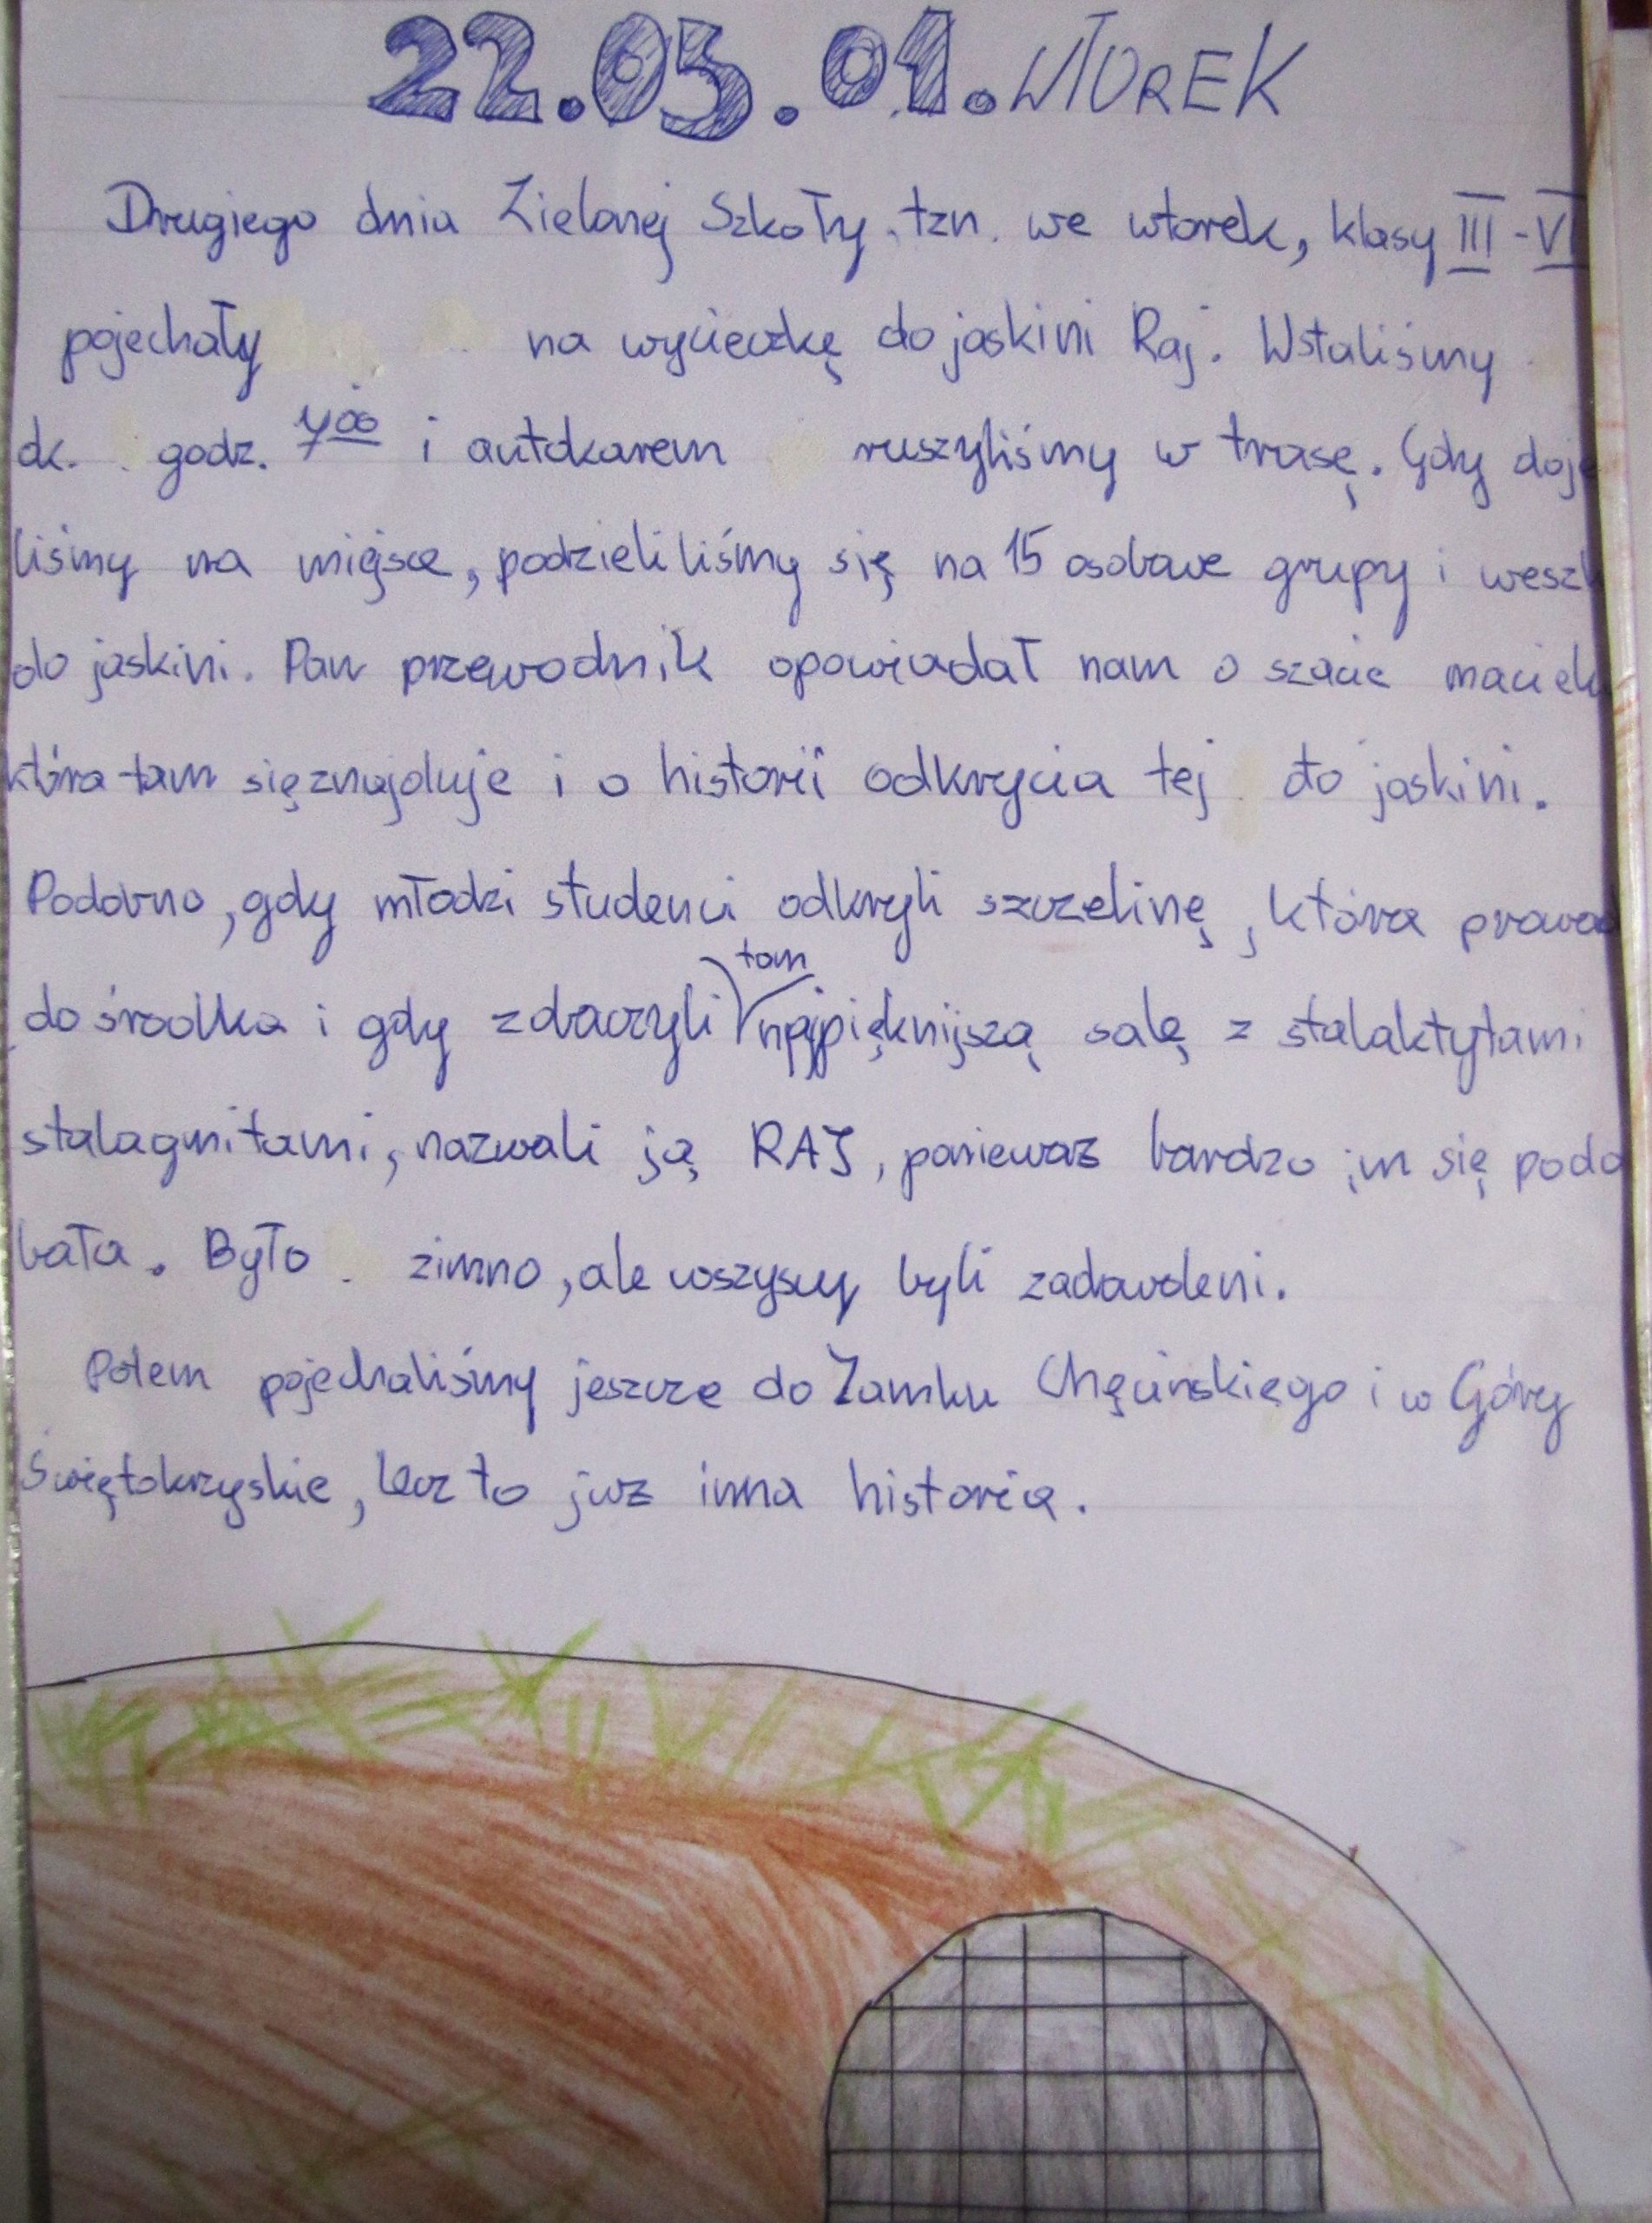 22.05.01. WTOREK
Drugiego dnia Zielonej Szkoły, tzn. we wtorek, klasy III-VI
pojechały na wycieczkę do jaskini Raj. Wstaliśmy
ok. godz. 7⁰⁰ i autokarem ruszyliśmy w trasę. Gdy doje
liśmy na miejsce, podzieliliśmy się na 15 osobowe grupy i weszl
do jaskini. Pan przewodnik opowiadał nam o szacie naciek
która tam się znajduje i o historii odkrycia tej do jaskini.
Podobno, gdy młodzi studenci odkryli szczelinę, która prowad
tam
do środka i gdy zobaczyli najpięknijszą salę z stalaktytami
stalagmitami, nazwali ją RAJ, ponieważ bardzo im się podo
bała. Było zimno, ale wszyscy byli zadowoleni.
Potem pojechaliśmy jeszcze do Zamku Chęcińskiego i w Góry
Świętokrzyskie, lecz to już inna historia.